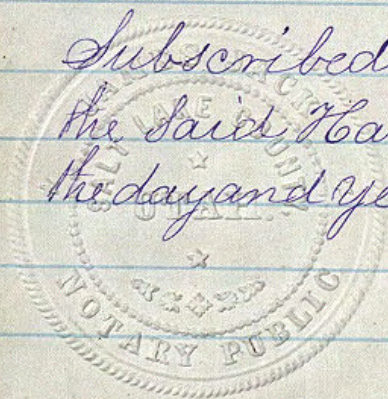 Subscribed
the said Ha
the day and ye
SALT LAKE COUNTY
UTAH.
NOTARY PUBLIC